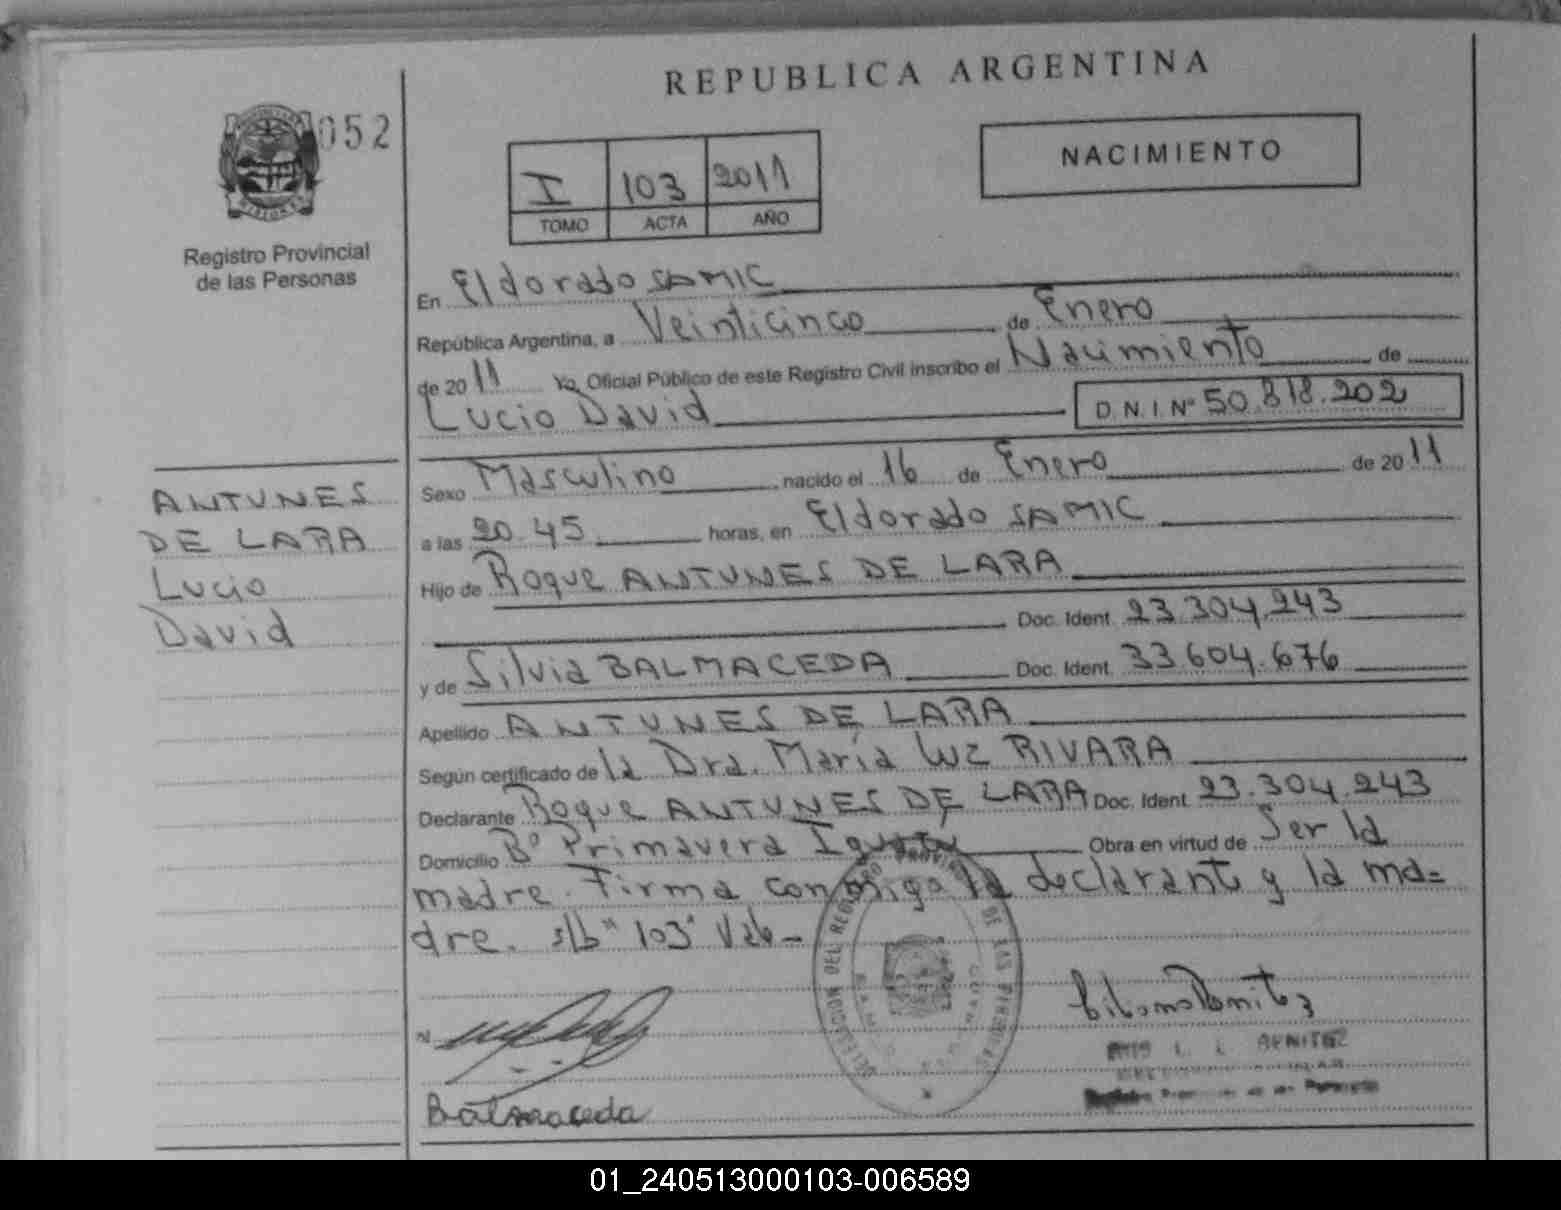 REPUBLICA ARGENTINA
052
NACIMIENTO
I 103 2011
TOMO ACTA AÑO
MISIONES
Registro Provincial
de las Personas
En Eldorado SAMIC
República Argentina, a Veinticinco de Enero
de 2011 Yo, Oficial Público de este Registro Civil inscribo el Nacimiento de
Lucio David D.N.I. Nº 50.818.202
Sexo Masculino nacido el 16 de Enero de 2011
a las 20.45 horas, en Eldorado SAMIC
Hijo de Roque ANTUNES DE LARA
Doc. Ident. 23.304.243
y de Silvia BALMACEDA Doc. Ident. 33.604.676
Apellido ANTUNES DE LARA
Según certificado de la Dra. María Luz RIVARA
Declarante Roque ANTUNES DE LARA Doc. Ident. 23.304.243
Domicilio Bº Primavera Obra en virtud de Ser la
madre. Firma conmigo declarante y la ma=
dre. s/b "103" Vale -
ANTUNES
DE LARA
Lucio
David
DELEGACION DEL REGISTRO PROVINCIAL DE LAS PERSONAS
Balmaceda
BENITEZ
01_240513000103-006589